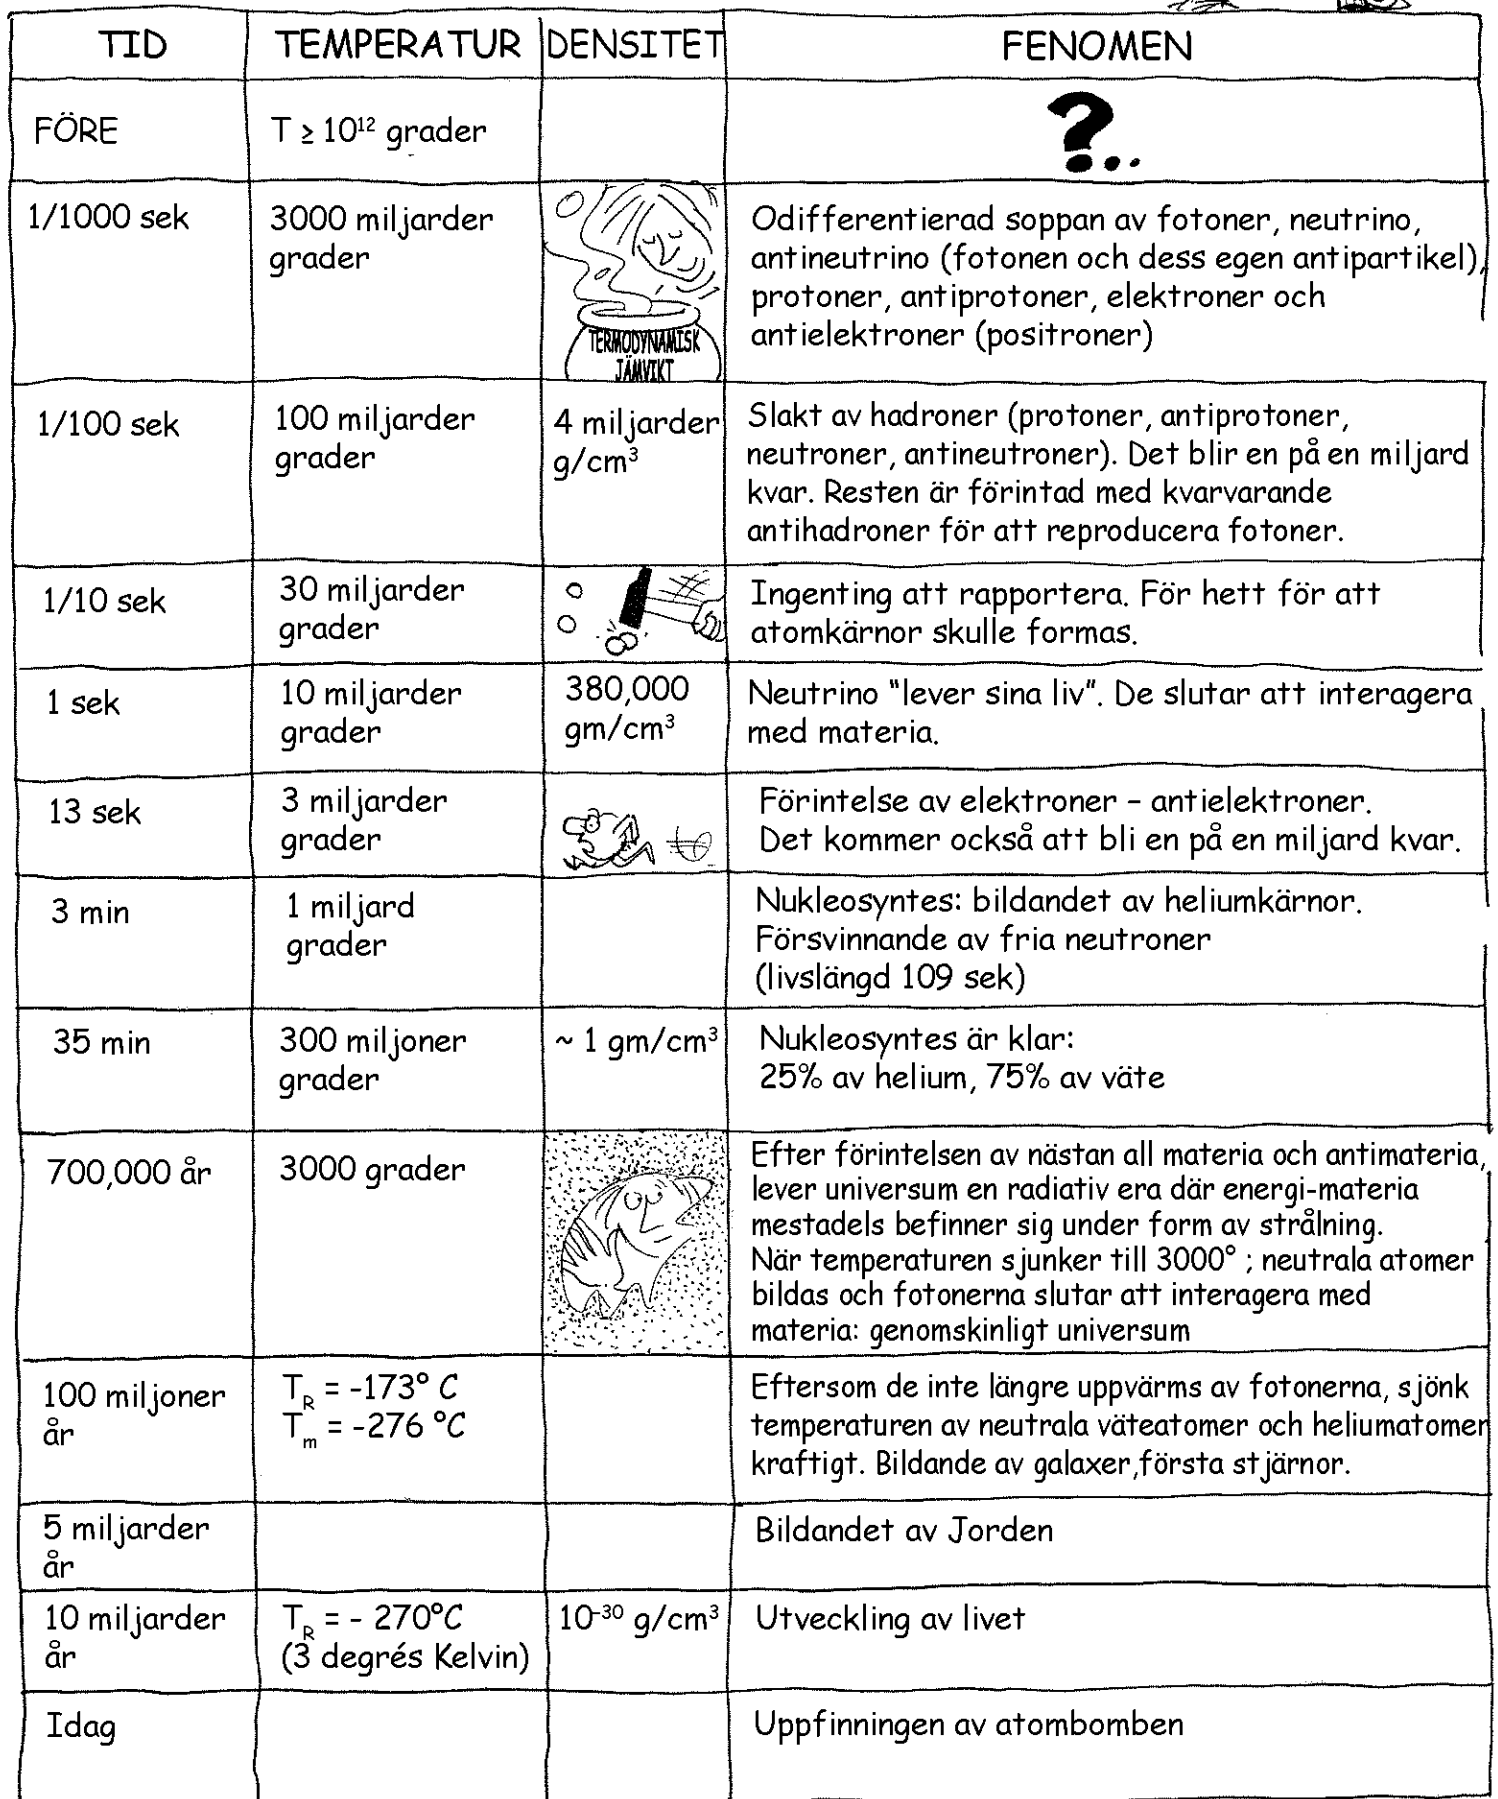 TID TEMPERATUR DENSITET FENOMEN
FÖRE T ≥ 10¹² grader ?..
1/1000 sek
3000 miljarder
grader
TERMODYNAMISK
JÄMVIKT
Odifferentierad soppan av fotoner, neutrino,
antineutrino (fotonen och dess egen antipartikel),
protoner, antiprotoner, elektroner och
antielektroner (positroner)
1/100 sek
100 miljarder
grader
4 miljarder
g/cm³
Slakt av hadroner (protoner, antiprotoner,
neutroner, antineutroner). Det blir en på en miljard
kvar. Resten är förintad med kvarvarande
antihadroner för att reproducera fotoner.
1/10 sek
30 miljarder
grader
Ingenting att rapportera. För hett för att
atomkärnor skulle formas.
1 sek
10 miljarder
grader
380,000
gm/cm³
Neutrino "lever sina liv". De slutar att interagera
med materia.
13 sek
3 miljarder
grader
Förintelse av elektroner – antielektroner.
Det kommer också att bli en på en miljard kvar.
3 min
1 miljard
grader
Nukleosyntes: bildandet av heliumkärnor.
Försvinnande av fria neutroner
(livslängd 109 sek)
35 min
300 miljoner
grader
~ 1 gm/cm³
Nukleosyntes är klar:
25% av helium, 75% av väte
700,000 år
3000 grader
Efter förintelsen av nästan all materia och antimateria,
lever universum en radiativ era där energi-materia
mestadels befinner sig under form av strålning.
När temperaturen sjunker till 3000° ; neutrala atomer
bildas och fotonerna slutar att interagera med
materia: genomskinligt universum
100 miljoner
år
T_R = -173° C
T_m = -276 °C
Eftersom de inte längre uppvärms av fotonerna, sjönk
temperaturen av neutrala väteatomer och heliumatomer
kraftigt. Bildande av galaxer,första stjärnor.
5 miljarder
år
Bildandet av Jorden
10 miljarder
år
T_R = - 270°C
(3 degrés Kelvin)
10⁻³⁰ g/cm³
Utveckling av livet
Idag
Uppfinningen av atombomben